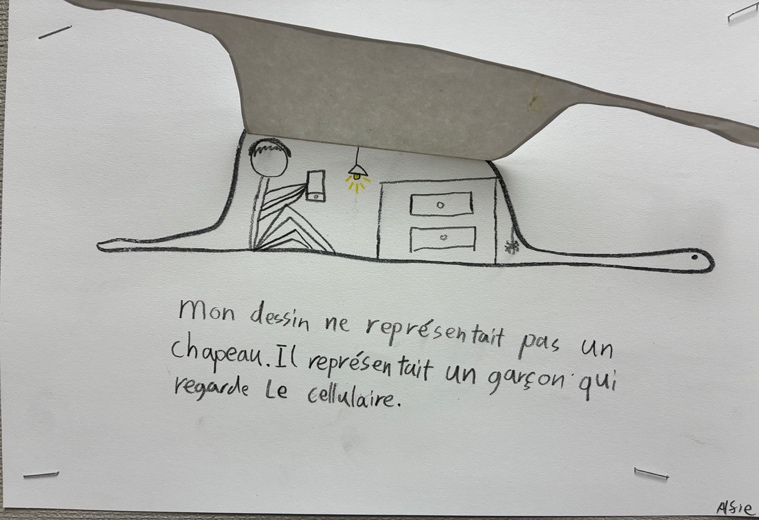 Mon dessin ne représentait pas un
chapeau. Il représentait un garçon qui
regarde le cellulaire.
Alfie